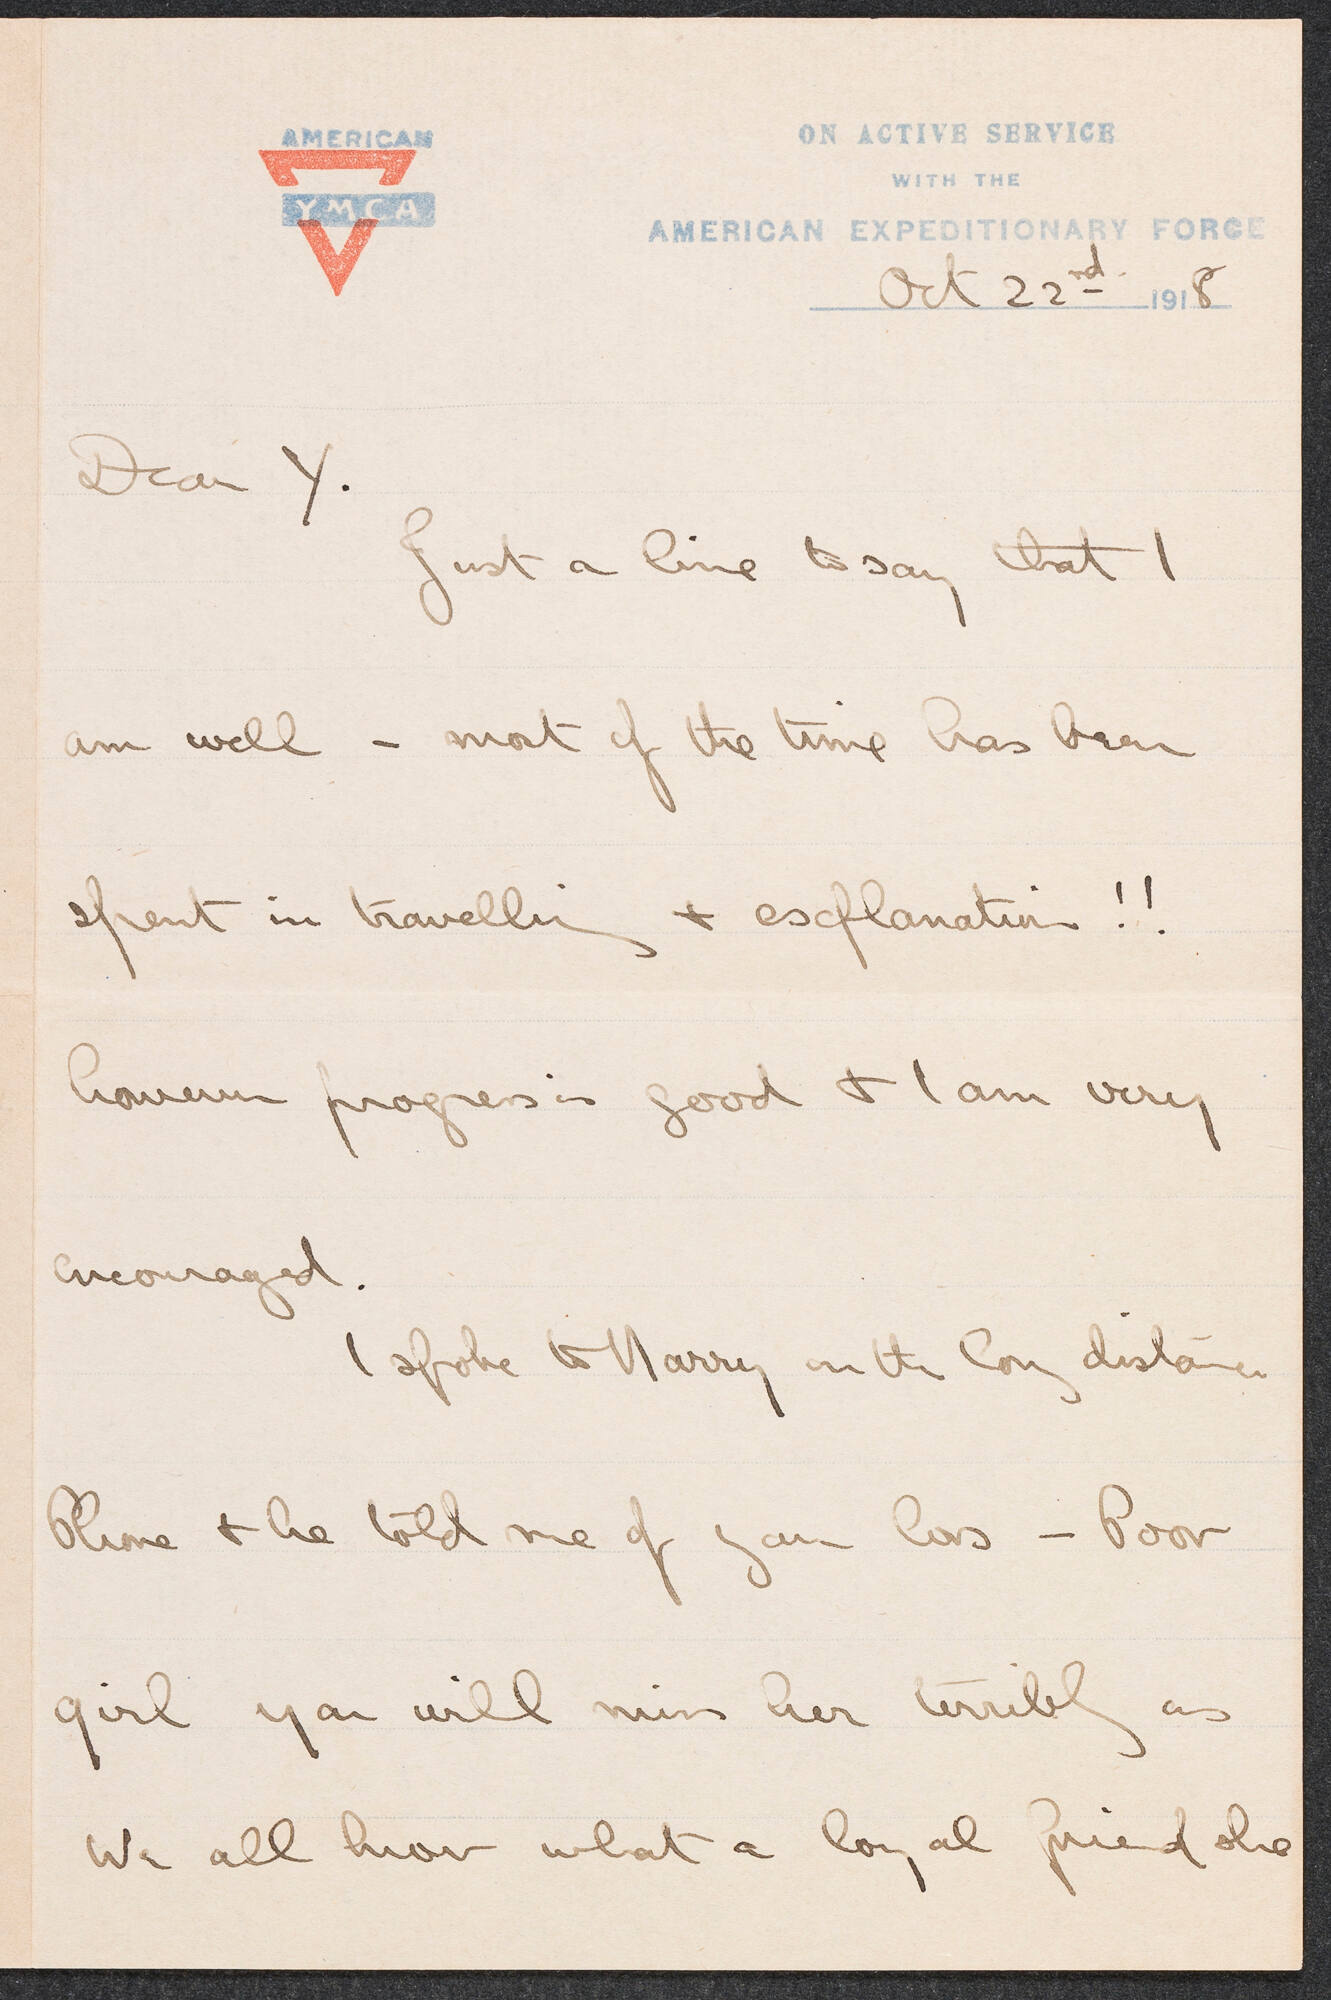 AMERICAN
YMCA
ON ACTIVE SERVICE
WITH THE
AMERICAN EXPEDITIONARY FORCE
Oct 22nd 1918
Dear Y.
Just a line to say that I
am well - most of the time has been
spent in travelling & explanation !!
however progress is good & I am very
encouraged.
I spoke to Harry on the long distance
Phone & he told me of your loss - Poor
girl you will miss her terribly as
We all know what a loyal friend she